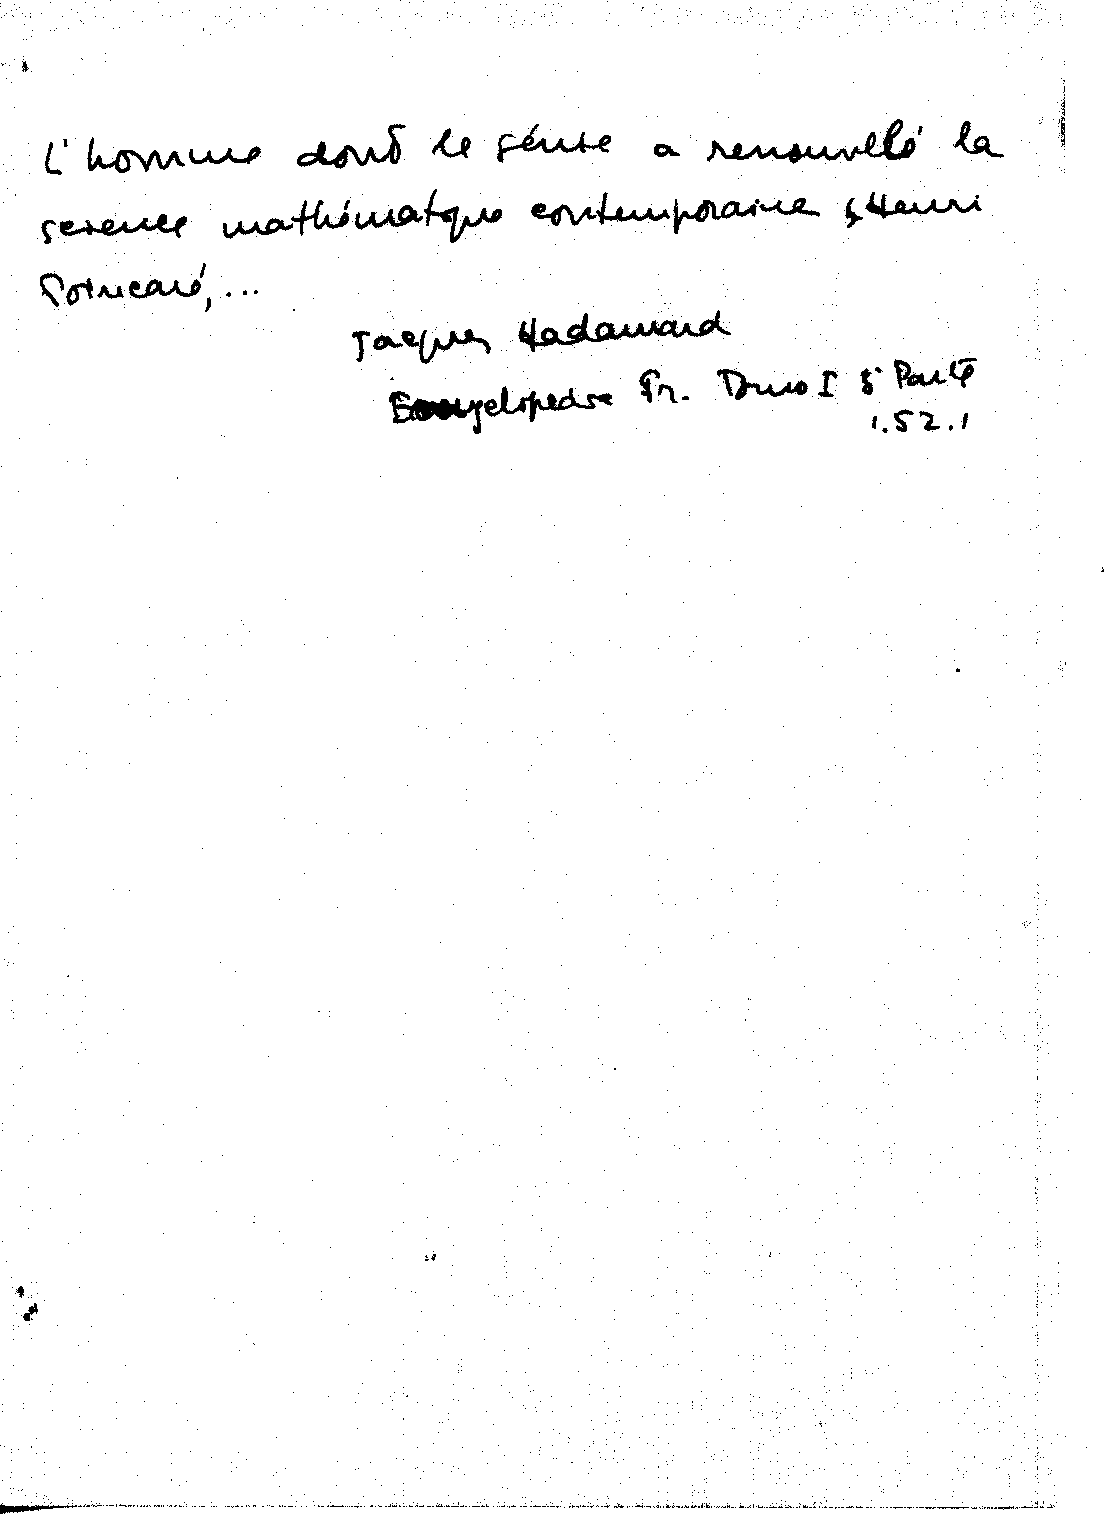 L'homme dont le génie a renouvellé la
science mathématique contemporaine, Henri
Poincaré, ...
Jacques Hadamard
Encyclopédie Fr. Tomo I 3e Partie
1.52.1